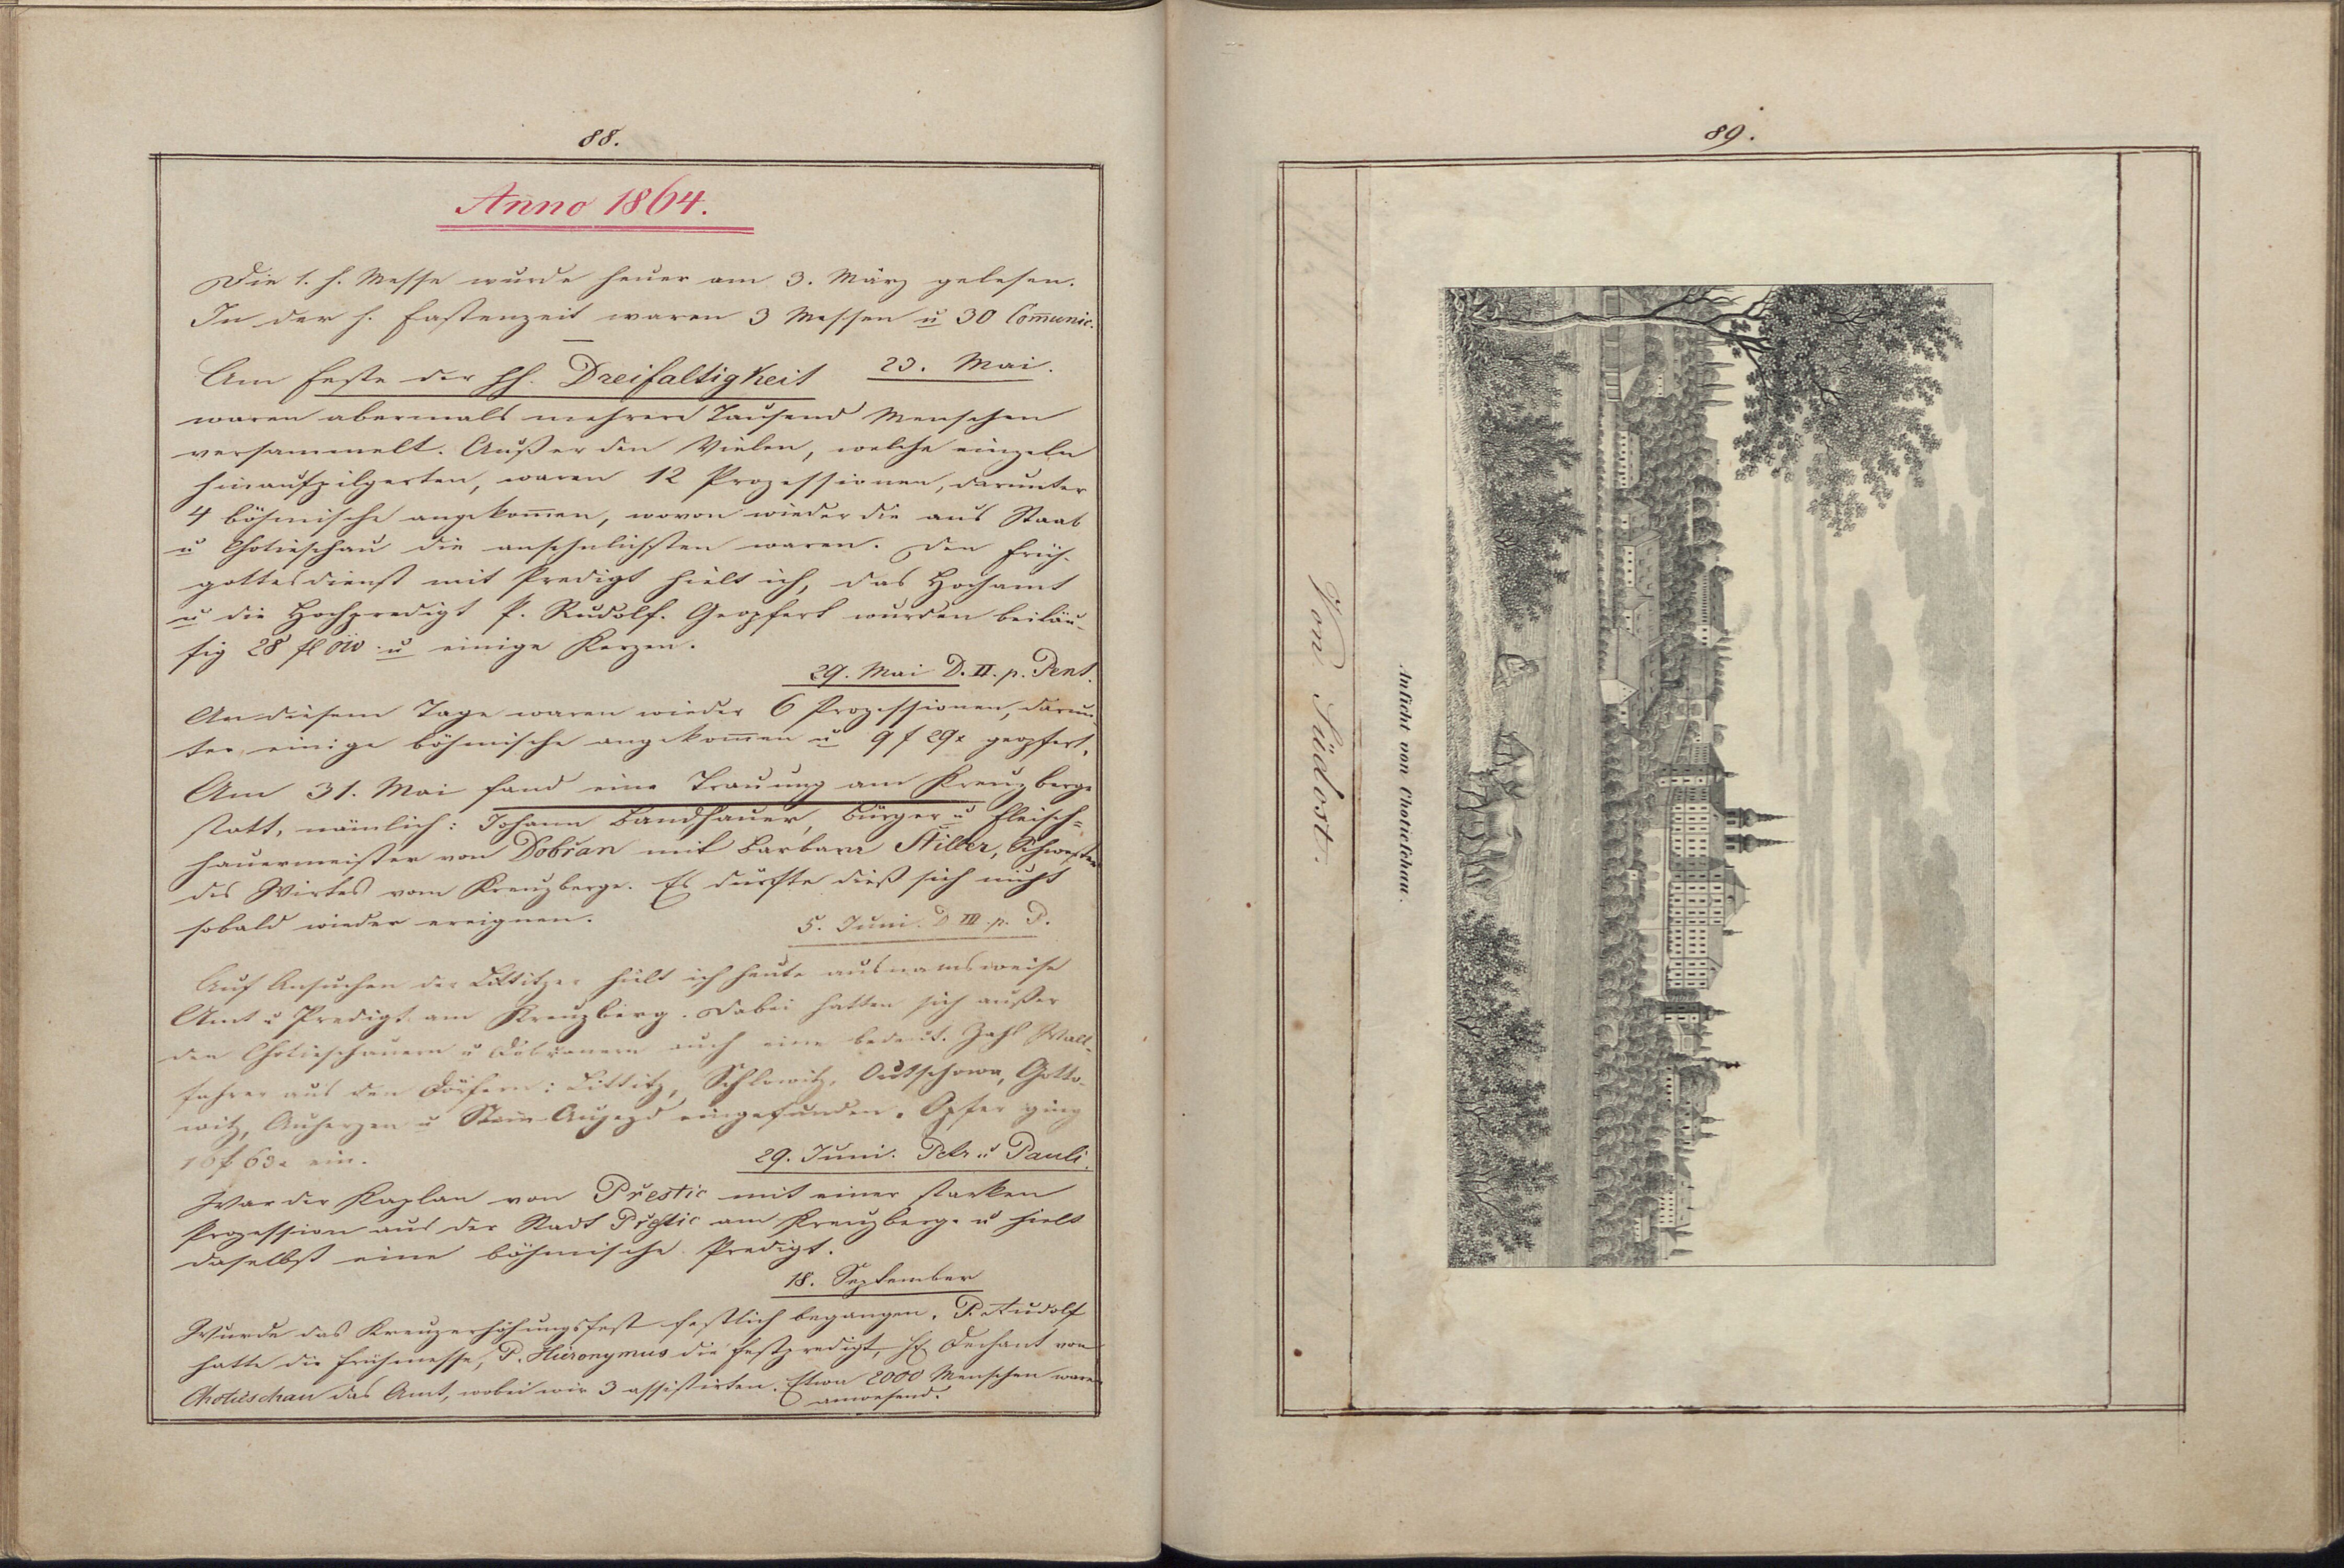 88.
Anno 1864.
Die 1. h. Messe wurde heuer am 3. März gelesen.
In der h. Fastenzeit waren 3 Messen u 30 Com̄unic.
Am Feste der hh. Dreifaltigkeit 23. Mai.
waren abermals mehrere Tausend Menschen
versammelt. Außer den Vielen, welche einzeln
hinaufpilgerten, waren 12 Prozessionen, darunter
4 böhmische angekom̄en, wovon wieder die aus Staab
u Chotieschau die ansehnlichsten waren. Den Früh-
gottesdienst mit Predigt hielt ich, das Hochamt
u die Hochpredigt P. Rudolf. Geopfert wurden beiläu-
fig 28 fl öw u einige Kerzen.
29. Mai D. II. p. Pent.
An diesem Tage waren wieder 6 Prozessionen, darun-
ter einige böhmische angekom̄en u 9 f 29x geopfert.
Am 31. Mai fand eine Trauung am Kreuzberge
statt, nämlich: Johann Bandhauer, Bürger u Fleisch=
hauermeister von Dobřan mit Barbara Stiller, Schwester
des Wirtes vom Kreuzberge. Es dürfte dieß sich nicht
sobald wieder ereignen.
5. Juni. D III. p. P.
Auf Ansuchen der Littitzer hielt ich heute ausnamsweise
Amt u Predigt am Kreuzberg. Dabei hatten sich außer
den Chotieschauern u Dobřanern auch eine bedeut. Zahl Wall-
fahrer aus den Dörfern: Littitz, Schlowitz, Outschowa, Gotto-
witz, Auherzen u Stein-Augezd eingefunden. Opfer ging
10 f 63x ein.
29. Juni. Petr u Pauli.
War der Kaplan von Přestic mit einer starken
Prozession aus der Stadt Přestic am Kreuzberge u hielt
daselbst eine böhmische Predigt.
18. September
Wurde das Kreuzerhöhungsfest festlich begangen. P. Rudolf
hatte die Frühmesse, P. Hieronymus die Festpredigt, H. Dechant von
Chotieschau das Amt, wobei wir 3 assistirten. Etwa 2000 Menschen waren
anwesend.
89.
Ansicht von Chotieschau.
Von Südost.